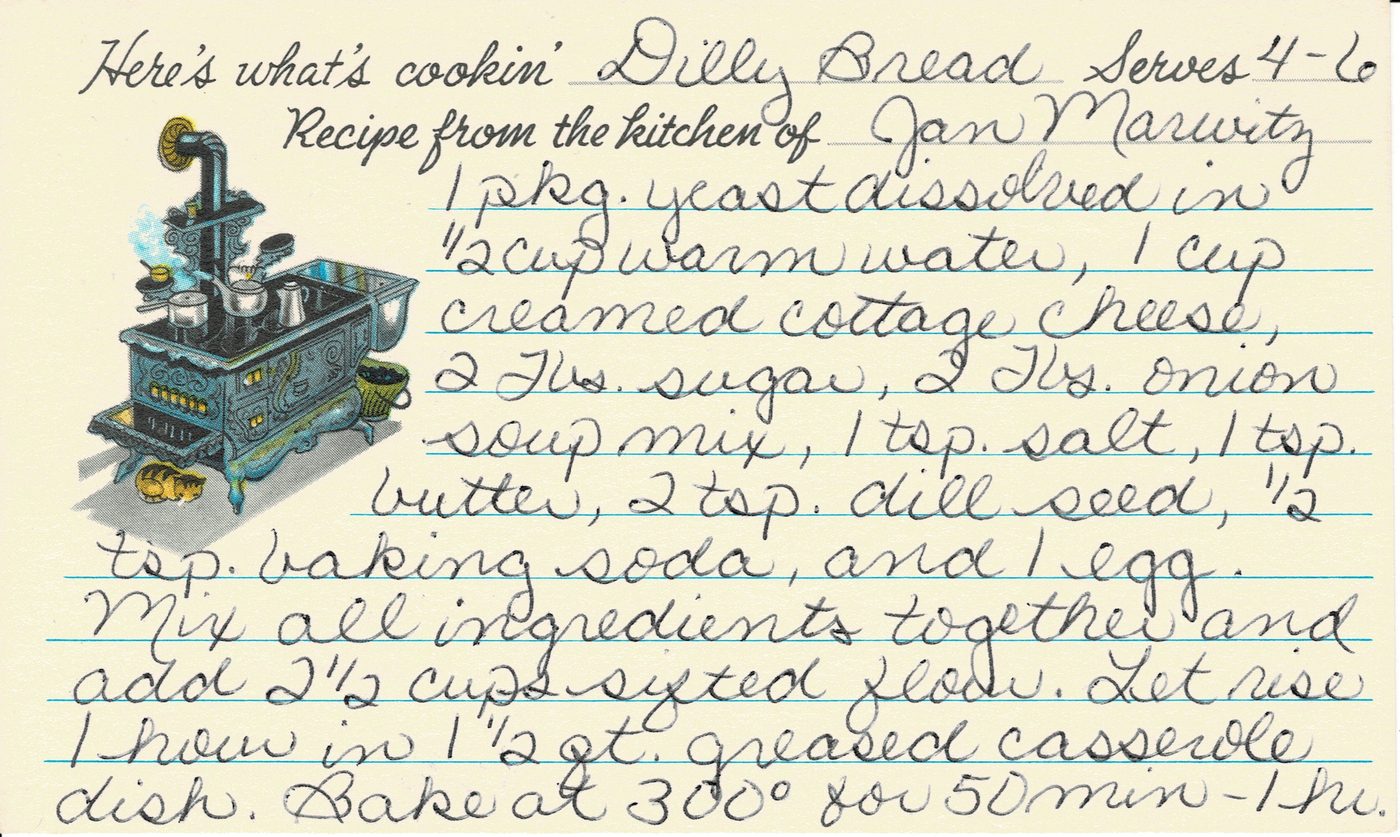 Here's what's cookin' Dilly Bread Serves 4-6
Recipe from the kitchen of Jan Marwitz
1 pkg. yeast dissolved in
1/2 cup warm water, 1 cup
creamed cottage cheese,
2 Tbs. sugar, 2 Tbs. onion
soup mix, 1 tsp. salt, 1 tsp.
butter, 2 tsp. dill seed, 1/2
tsp. baking soda, and 1 egg.
Mix all ingredients together and
add 2 1/2 cups sifted flour. Let rise
1 hour in 1 1/2 qt. greased casserole
dish. Bake at 300° for 50 min - 1 hr.